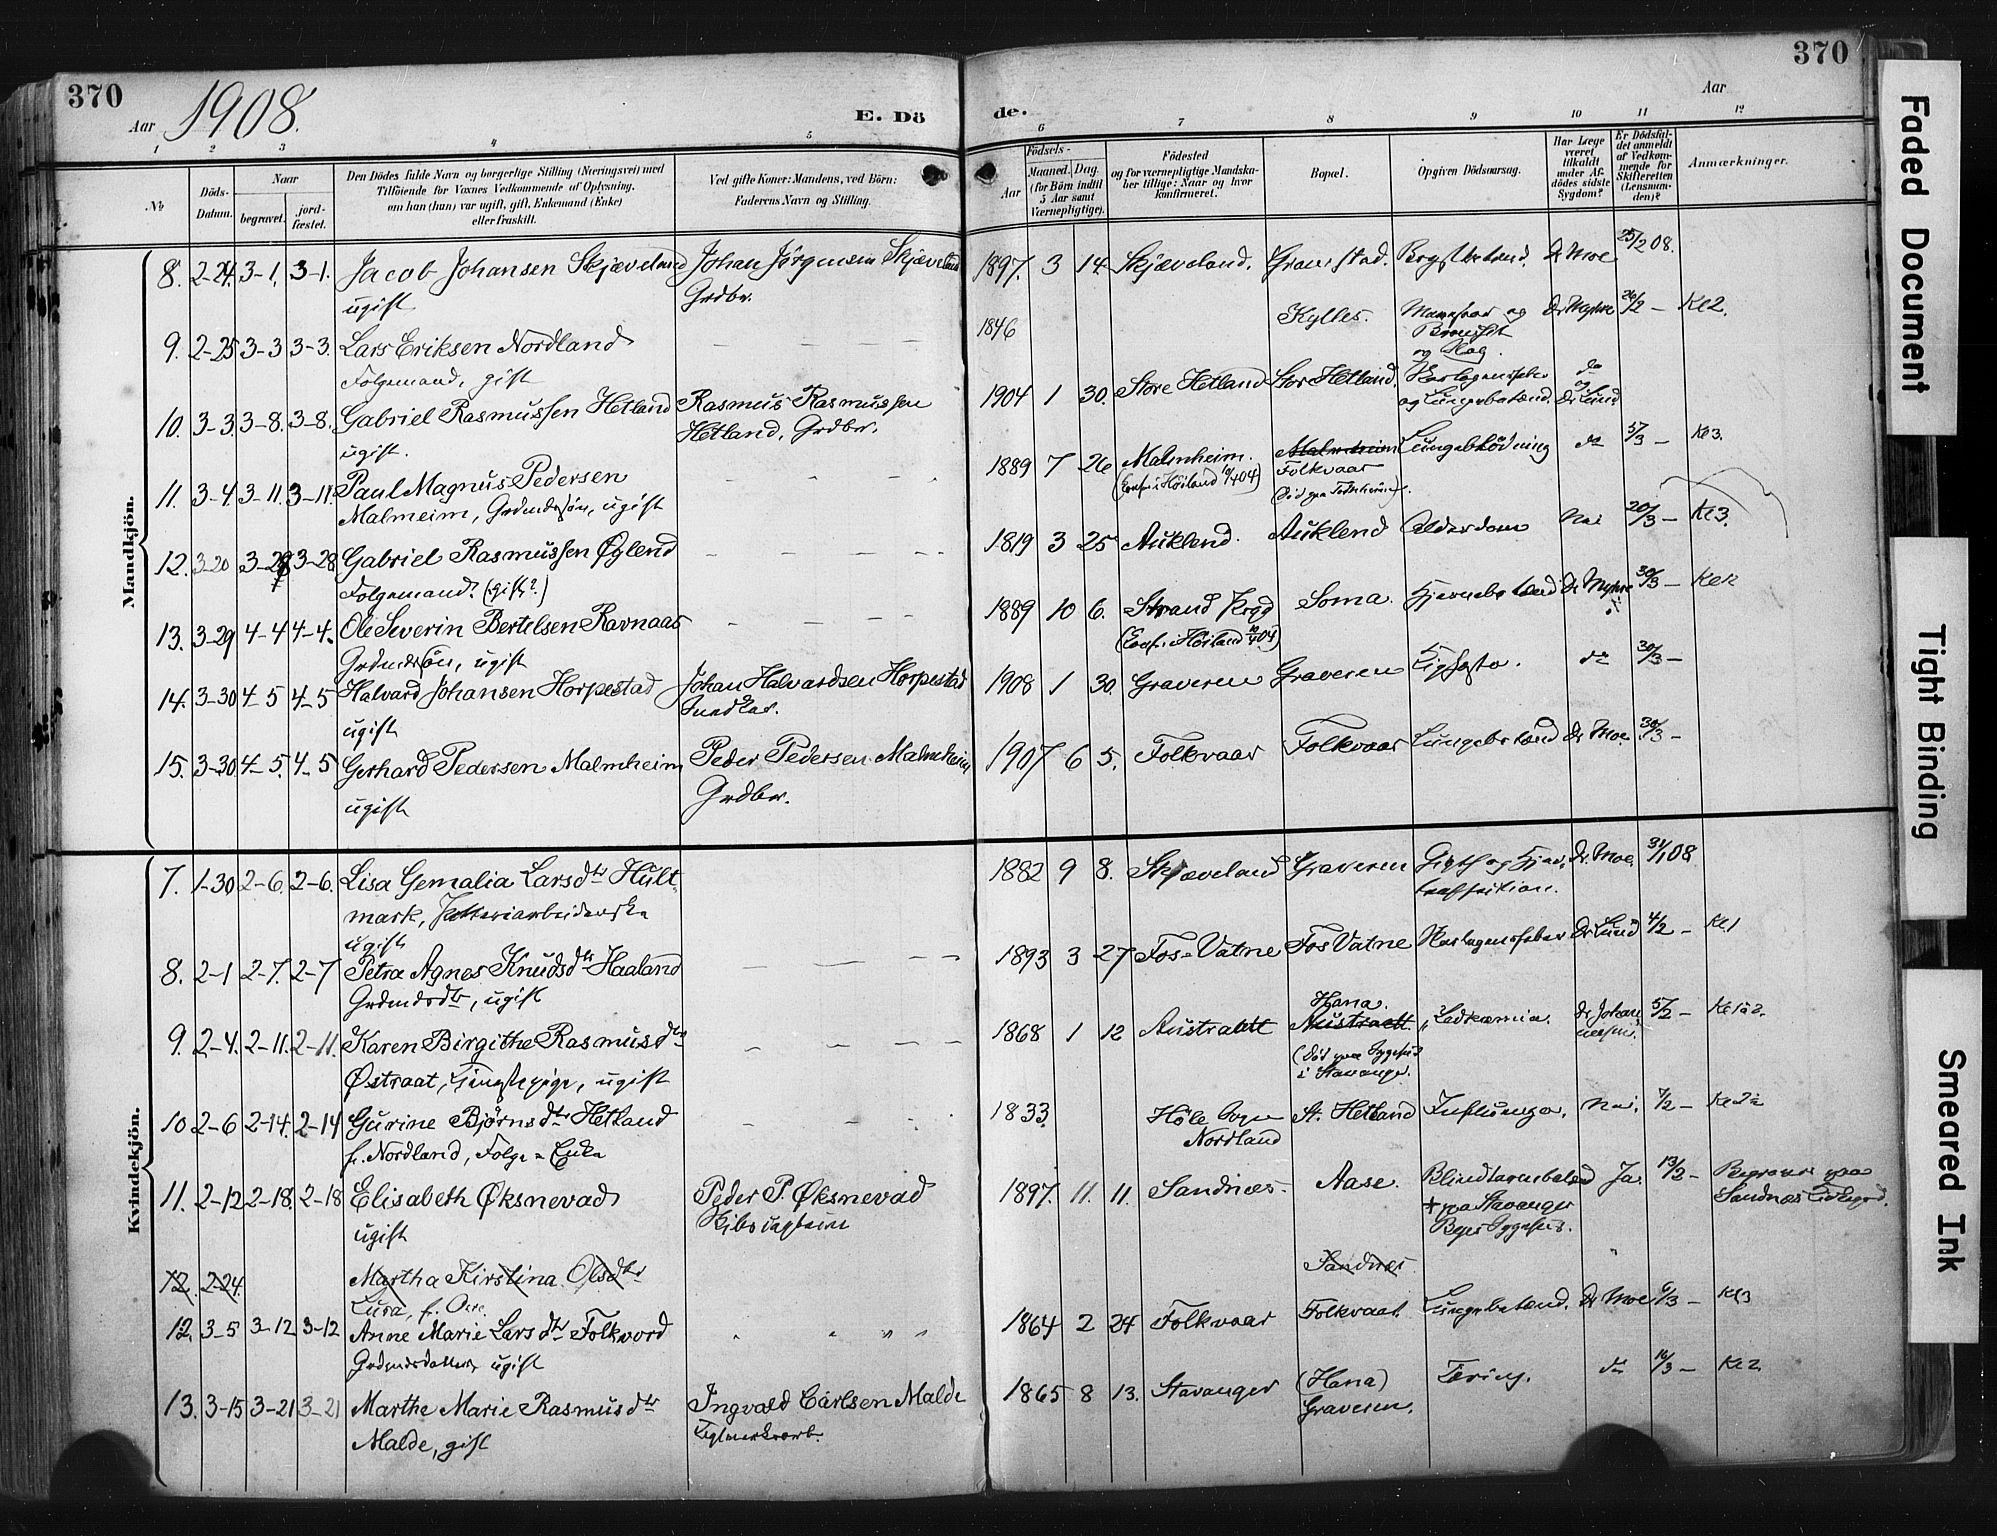 370
Aar 1908.
E. Dö
1 2 3 4 5
№
Döds-
Datum.
Naar
begravet.
jord-
fæstet.
Den Dödes fulde Navn og borgerlige Stilling (Næringsvei) med
Tilföiende for Voxnes Vedkommende af Oplysning,
om han (hun) var ugift, gift, Enkemand (Enke)
eller fraskilt.
Ved gifte Koner: Mandens, ved Börn:
Faderens Navn og Stilling.
Mandkjön.
8. 2-24. 3-1. 3-1. Jacob Johansen Skjæveland Johan Jörgensen Skjæveland
ugift Grdbr.
9. 2-25 3-3 3-3. Lars Eriksen Nordland
Folgemand, gift
10. 3-3. 3-8. 3-8. Gabriel Rasmussen Hetland Rasmus Rasmussen
ugift. Hetland, Grdbr.
11. 3-4. 3-11. 3-11. Paul Magnus Pedersen
Malmeim, Grdmdssøn, ugift
12. 3-20 3-28 3-28 Gabriel Rasmussen Øglend
Folgemand? (gift?)
13. 3-29 4-4 4-4. Ole Severin Bertelsen Ravnaas
Grdmdssøn, ugift
14. 3-30 4-5 4-5 Halvard Johansen Horpestad Johan Halvardsen Horpestad
ugift
15. 3-30 4-5. 4-5 Gerhard Pedersen Malmheim Peder Pedersen Malmheim
ugift Grdbr.
Kvindekjön.
7. 1-30 2-6. 2-6. Lisa Gemalia Larsdtr Hult-
mark,
ugift
8. 2-1 2-7. 2-7 Petra Agnes Knudsdtr Haaland
Grdmdsdtr, ugift
9. 2-4. 2-11. 2-11. Karen Birgithe Rasmusdtr
Østraat, Tjenestepige, ugift
10 2-6 2-14. 2-14 Gurine Björnsdtr Hetland
f. Nordland, Folge-Enke
11. 2-12 2-18. 2-18 Elisabeth Øksnevad Peder P. Øksnevad
ugift
12. 2-24. Martha Kirstina Olsdtr
Lura, f.
12. 3-5 3-12 3-12 Anne Marie Larsdtr Folkvord
Grdmdsdatter, ugift
13. 3-15 3-21 3-21 Marthe Marie Rasmusdtr Ingvald Carlsen Malde
Malde, gift
370
Aar
de.
6 7 8 9 10 11 12
Aar
Födsels-
Maaned. Dag.
(for Börn indtil
5 Aar samt
Værnepligtige).
Födested
og for værnepligtige Mandska-
ber tillige: Naar og hvor
konfirmeret.
Bopæl.
Opgiven Dödsaarsag.
Har Læge
været
tilkaldt
under Af-
dödes sidste
Sygdom?
Er Dödsfal-
det anmeldt
af Vedkom-
mende for
Skifteretten
(Lensman-
den)?
Anmærkninger.
1897. 3 14. Skjæveland. Dr Moe 25/2 08.
1846 Kylles. Dr Myhre 26/2 - Kl 2.
1904 1 30. Store Hetland Stor Hetland.
og Lungebetænd. Dr Lund
1889 7 26 Malmheim. Malmheim Lungeblödning do 5/3 - Kl 3.
Folkvaar
1819 3 25 Auklend. Auklend Alderdom Nei 20/3 - Kl 3.
1889 10 6. Strand Soma. Hjernebetænd Dr Myhre 30/3 - Kl 2
1908 1 30. Graveren Graveren do 30/3 -
1907 6 5. Folkvaar Folkvaar Lungebetænd Dr Moe. 30/3 -
1882 9 8. Skjæveland Graveren Dr Moe. 31/1 08
1893 3 27 Fos-Vatne Fos Vatne Dr Lund 4/2 - Kl 1
Hana.
1868 1 12 Austraatt Austraatt Dr Johan- 5/2 -
nesen.
(Död paa Sygehus
i Stavanger.
1833. Höle Sogn St. Hetland Influenza. Nei. 7/2 -
Nordland
1897. 11. 11. Sandnæs. Aase. Blindtarmbetænd Ja. 13/2 - Begravet paa
† paa Stavanger Sandnæs
Byes Sygehus.
Sandnæs.
1864 2 24 Folkvaar Folkvaar. Lungebetænd. Dr Moe 6/3 - Kl 3
1865 8 13. Stavanger (Hana) Tæring. do 16/3 - Kl 2
Graveren.
Faded Document
Tight Binding
Smeared Ink